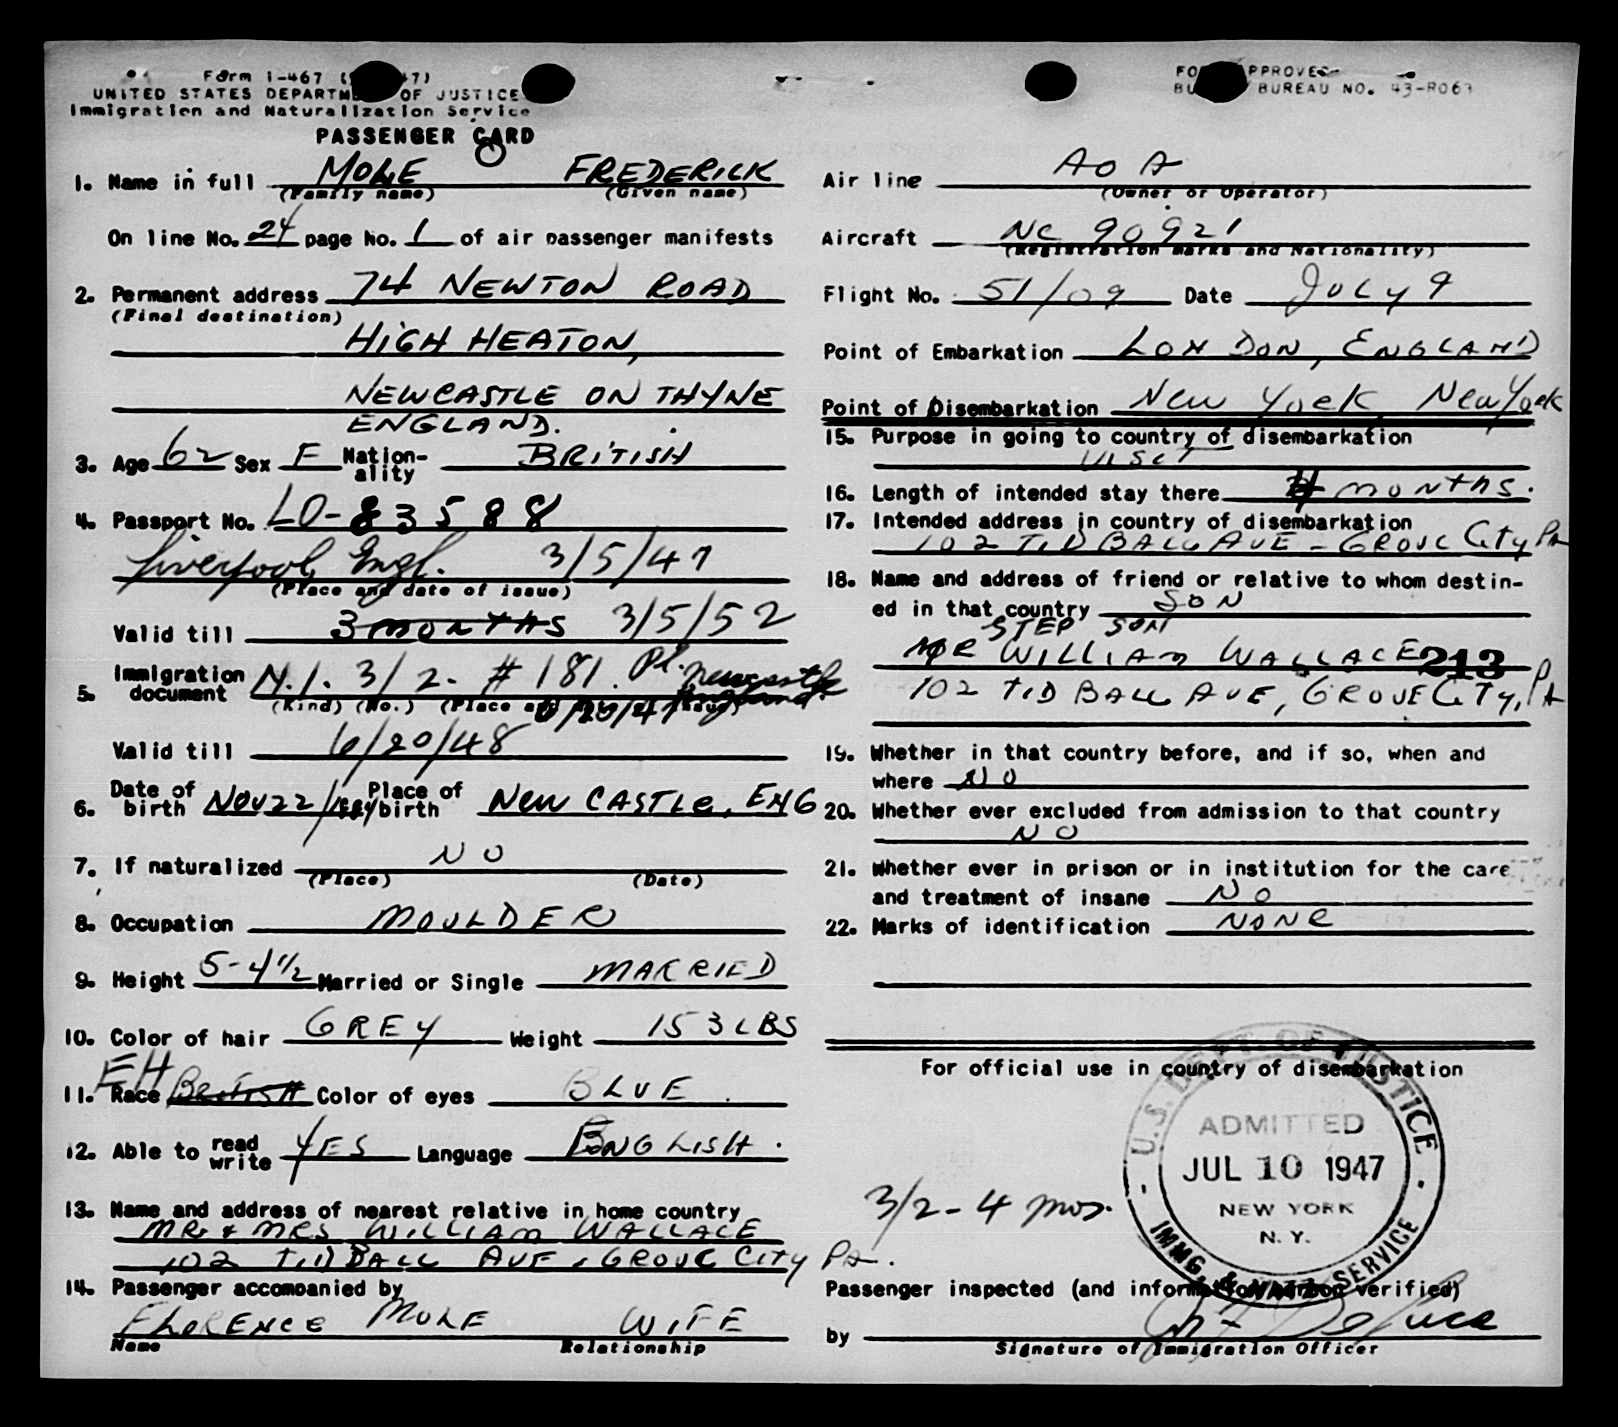 Form I-467
UNITED STATES DEPARTMENT OF JUSTICE
Immigration and Naturalization Service
PASSENGER CARD
1. Name in full MOLE FREDERICK
(Family name) (Given name)
On line No. 24 page No. 1 of air passenger manifests
2. Permanent address 74 NEWTON ROAD
(Final destination)
HIGH HEATON,
NEWCASTLE ON THYNE
ENGLAND.
3. Age 62 Sex F Nation-ality BRITISH
4. Passport No. LO-83588
Liverpool, Engl. 3/5/47
(Place and date of issue)
Valid till 3 MONTHS 3/5/52
5. Immigration document N.I. 3/2. # 181. Newcastle England.
(Kind) (No.) (Place and date of issue) 6/20/47
Valid till 6/20/48
6. Date of birth NOV 22/ Place of birth NEW CASTLE, ENG
7. If naturalized NO
(Place) (Date)
8. Occupation MOULDER
9. Height 5-4½ Married or Single MARRIED
10. Color of hair GREY Weight 153 LBS
EH
11. Race BRITISH Color of eyes BLUE.
12. Able to read write YES Language ENGLISH.
13. Name and address of nearest relative in home country
MR & MRS WILLIAM WALLACE
102 TIDBALL AVE, GROVE CITY PA.
14. Passenger accompanied by
FLORENCE MOLE WIFE
Name Relationship
FORM APPROVED
BUDGET BUREAU NO. 43-R063
Air line AOA
(Owner or Operator)
Aircraft NC 90921
(Registration marks and Nationality)
Flight No. 51/09 Date JULY 9
Point of Embarkation LONDON, ENGLAND
Point of Disembarkation New York New York
15. Purpose in going to country of disembarkation
VISIT
16. Length of intended stay there 4 MONTHS.
17. Intended address in country of disembarkation
102 TIDBALL AVE - GROVE City PA
18. Name and address of friend or relative to whom destin-
ed in that country SON
STEP SON
MR WILLIAM WALLACE 213
102 TIDBALL AVE, GROVE CITY, PA
19. Whether in that country before, and if so, when and
where NO
20. Whether ever excluded from admission to that country
NO
21. Whether ever in prison or in institution for the care
and treatment of insane NO
22. Marks of identification NONE
For official use in country of disembarkation
U.S. DEPT. OF JUSTICE
ADMITTED
JUL 10 1947
NEW YORK
N. Y.
IMMG. & NATZ. SERVICE
3/2 - 4 mos.
Passenger inspected (and information hereon verified)
by
Signature of Immigration Officer